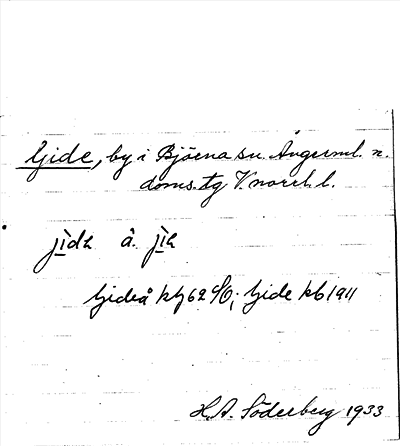 Gide, by i Bjärna sn. Ångerml. n.
doms. tg V.norrl. l.
jìdɩ å jìɩ
Gideå kbg 62 %; Gide kb 1911
H.A. Söderberg 1933